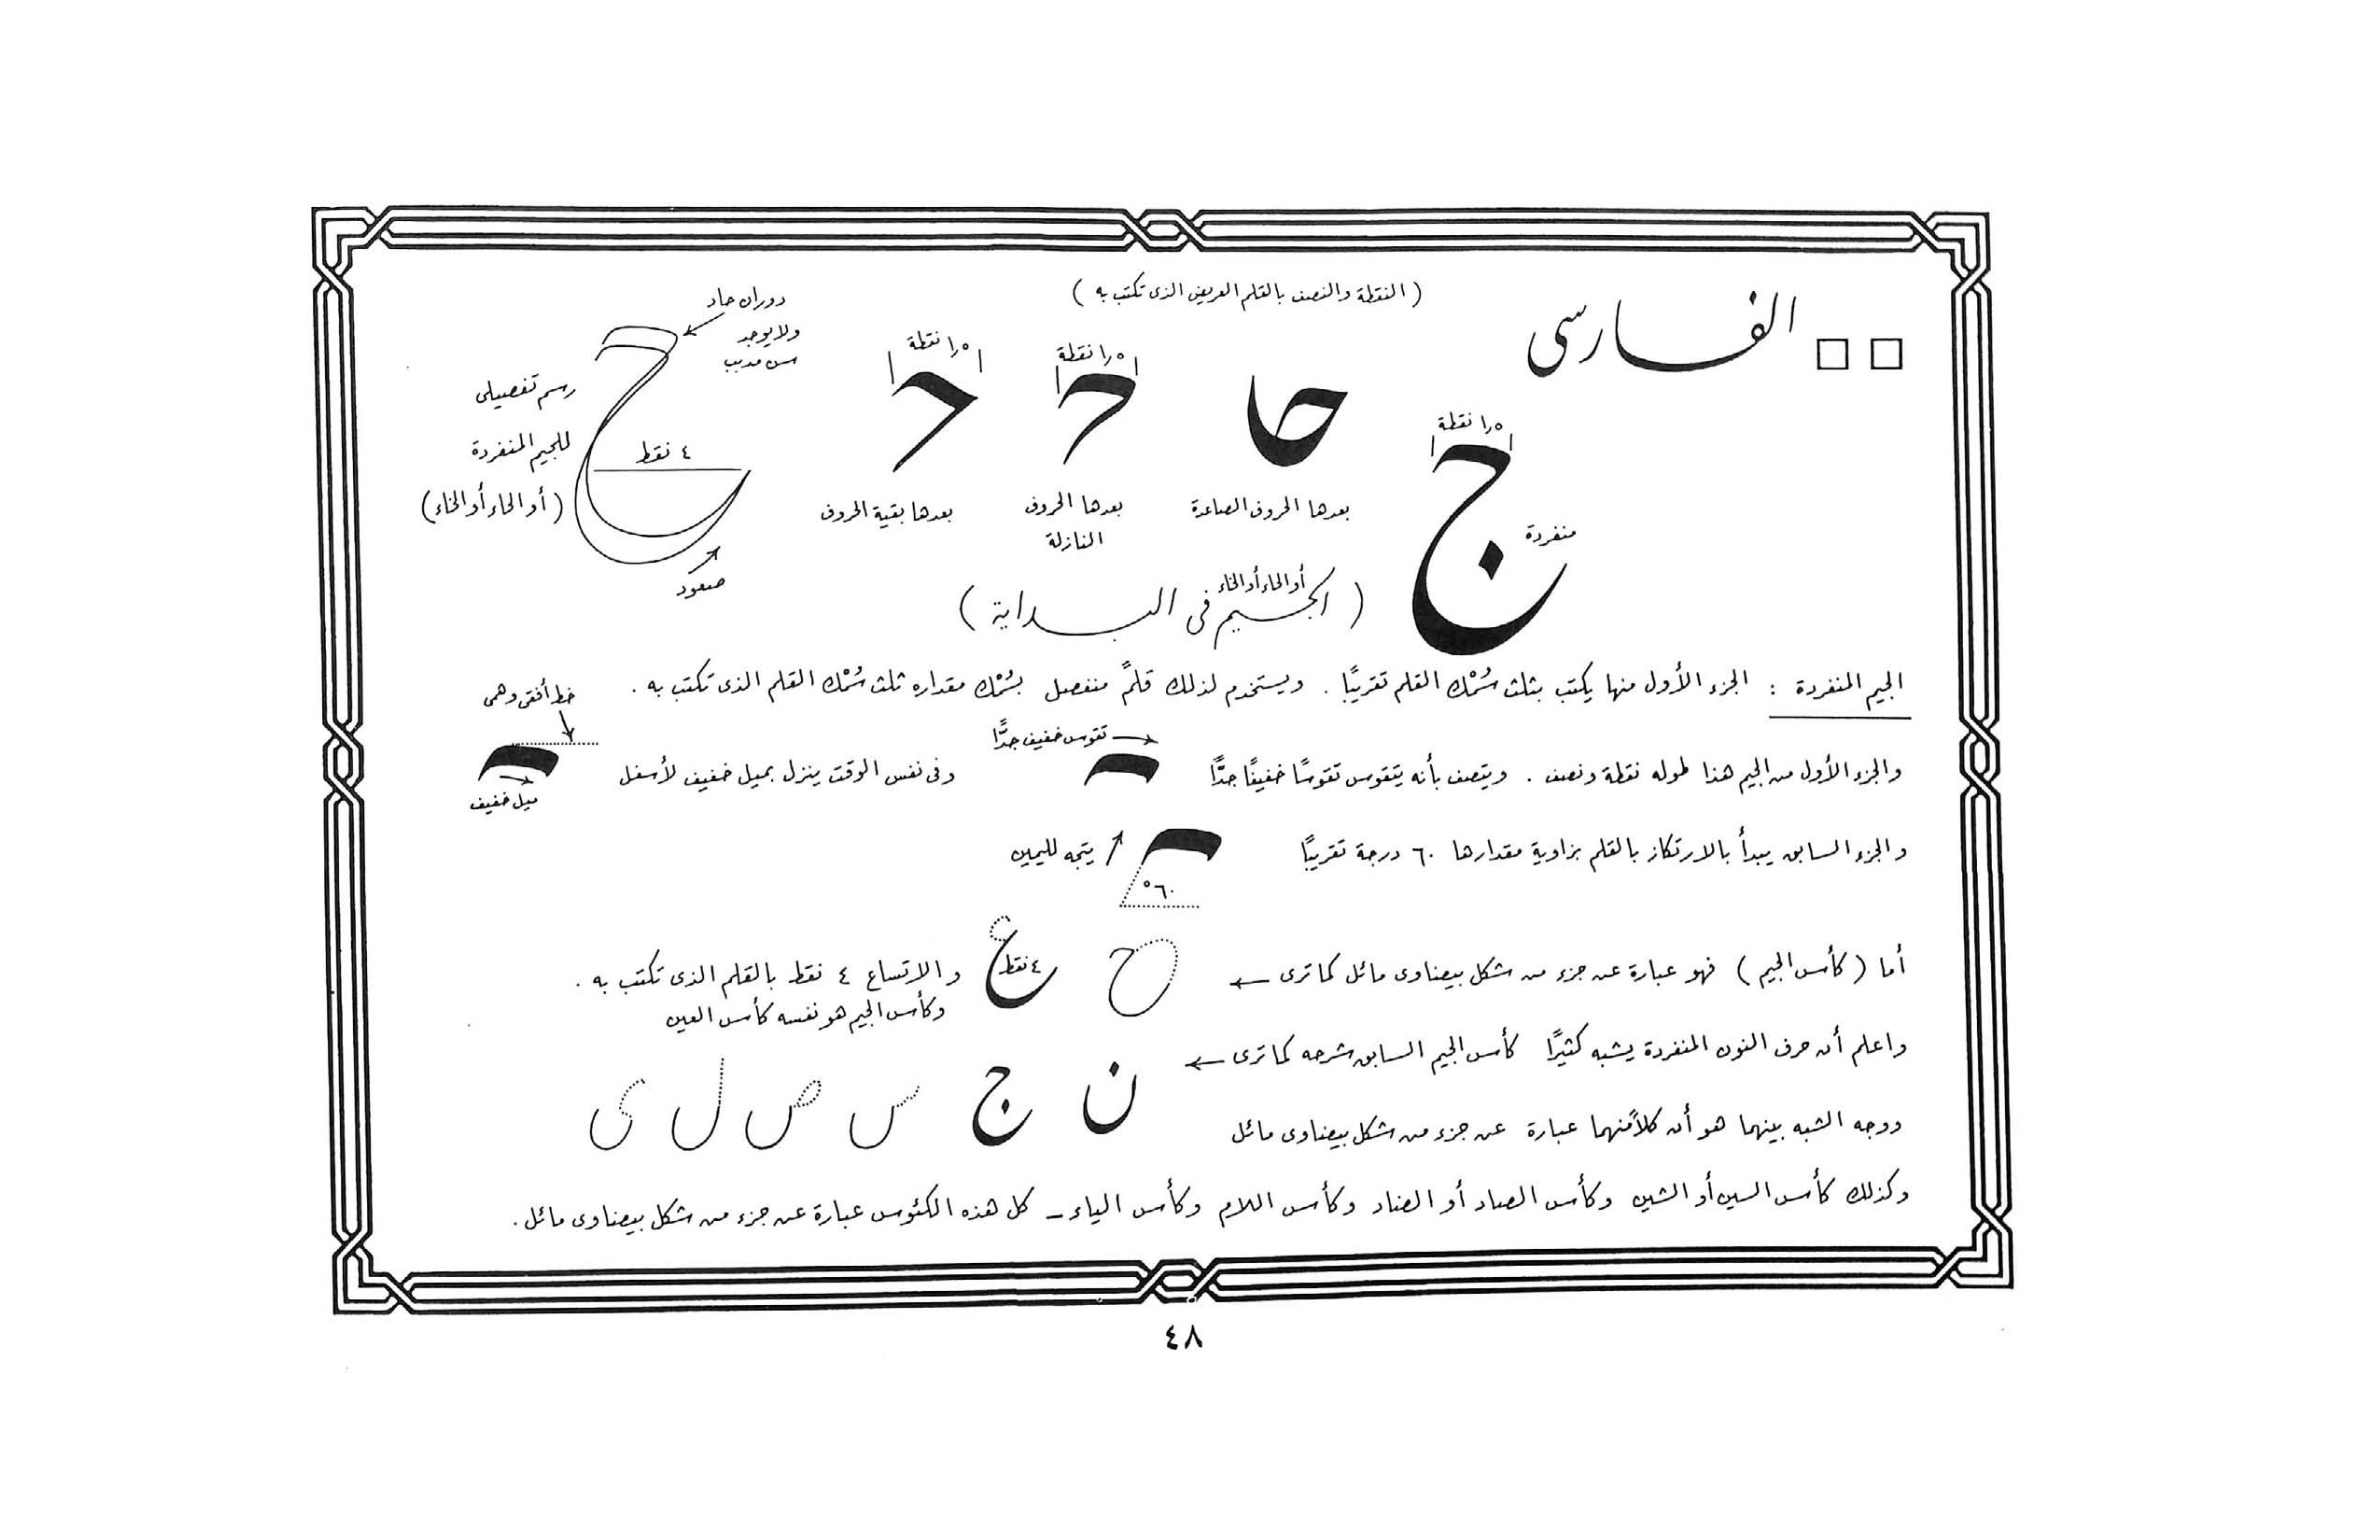 الفارسى
(النقطة والنصف بالقلم العريض الذى تكتب به)
١٫٥ نقطة
١٫٥ نقطة
١٫٥ نقطة
١٫٥ نقطة
ج
حا
منفردة
بعدها الحروف الصاعدة
بعدها الحروف
النازلة
بعدها بقية الحروف
دوران حاد
ولا يوجد
سن مدبب
رسم تفصيلى
للجيم المنفردة
(أو الحاء أو الخاء)
٤ نقط
صعود
(الجيم أو الحاء أو الخاء فى البداية)
الجيم المنفردة : الجزء الأول منها يكتب بثلث سُمْك القلم تقريبًا . ويستخدم لذلك قلمً منفصل بسُمْك مقداره ثلث سُمْك القلم الذى تكتب به .
خط أفقى وهمى
والجزء الأول من الجيم هذا طوله نقطة ونصف . ويتصف بأنه يتقوس تقوسًا خفيفًا جدًّا
تقوس خفيف جدًّا
وفى نفس الوقت ينزل بميل خفيف لأسفل
ميل خفيف
والجزء السابق يبدأ بالارتكاز بالقلم بزاوية مقدارها ٦٠ درجة تقريبًا
يتجه لليمين
٦٠°
أما (كأس الجيم) فهو عبارة عن جزء من شكل بيضاوى مائل كما ترى
ع
٤ نقط
والاتساع ٤ نقط بالقلم الذى تكتب به .
وكأس الجيم هو نفسه كأس العين
واعلم أن حرف النون المنفردة يشبه كثيرًا كأس الجيم السابق شرحه كما ترى
ن ج س ص ل ى
ووجه الشبه بينهما هو أن كلاًمنهما عبارة عن جزء من شكل بيضاوى مائل
وكذلك كأس السين أو الشين وكأس الصاد أو الضاد وكأس اللام وكأس الياء - كل هذه الكئوس عبارة عن جزء من شكل بيضاوى مائل .
٤٨